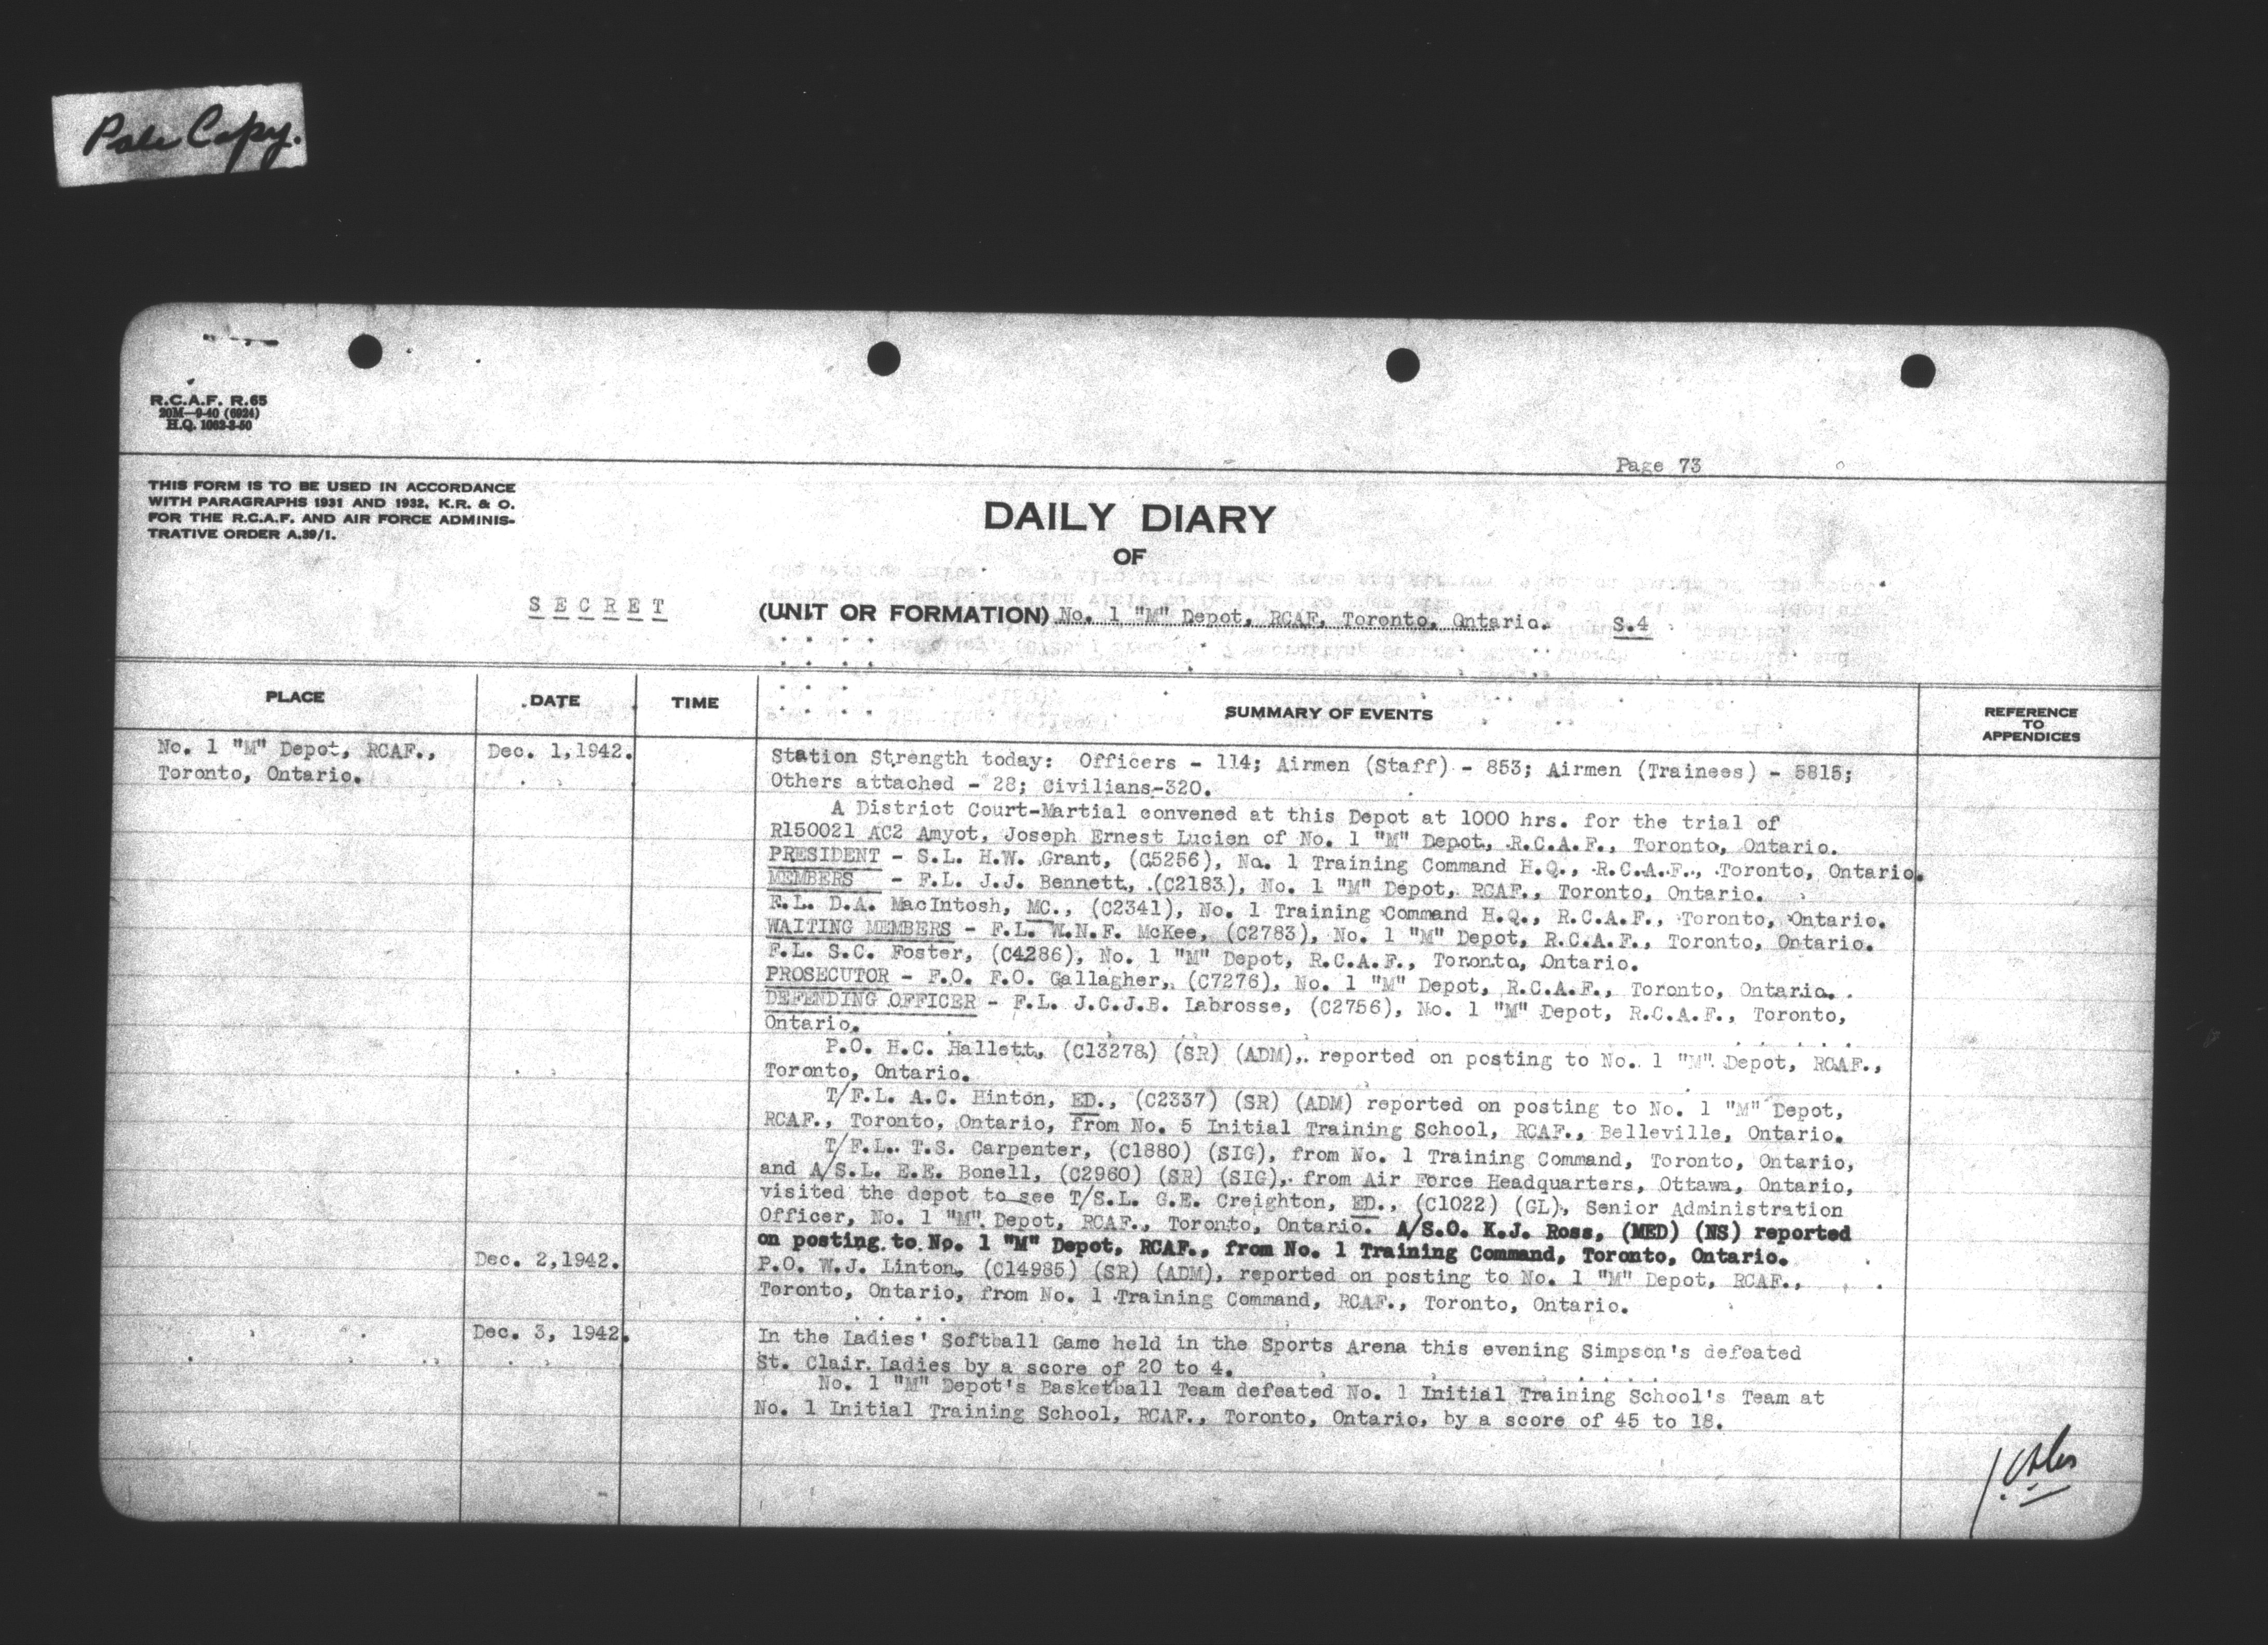 Pale Copy.
R.C.A.F. R.65
20M—9-40 (6924)
H.Q. 1062-3-50
Page 73
THIS FORM IS TO BE USED IN ACCORDANCE
WITH PARAGRAPHS 1931 AND 1932, K.R. & O.
FOR THE R.C.A.F. AND AIR FORCE ADMINIS-
TRATIVE ORDER A.39/1.
DAILY DIARY
OF
SECRET
(UNIT OR FORMATION) No. 1 "M" Depot, RCAF, Toronto, Ontario. S.4
PLACE DATE TIME SUMMARY OF EVENTS REFERENCE TO APPENDICES
No. 1 "M" Depot, RCAF.,
Toronto, Ontario.
Dec. 1,1942.
Station Strength today: Officers - 114; Airmen (Staff) - 853; Airmen (Trainees) - 5815;
Others attached - 28; Civilians-320.
A District Court-Martial convened at this Depot at 1000 hrs. for the trial of
R150021 AC2 Amyot, Joseph Ernest Lucien of No. 1 "M" Depot, R.C.A.F., Toronto, Ontario.
PRESIDENT - S.L. H.W. Grant, (C5256), No. 1 Training Command H.Q., R.C.A.F., Toronto, Ontario.
MEMBERS - F.L. J.J. Bennett, (C2183), No. 1 "M" Depot, RCAF., Toronto, Ontario.
F.L. D.A. MacIntosh, MC., (C2341), No. 1 Training Command H.Q., R.C.A.F., Toronto, Ontario.
WAITING MEMBERS - F.L. W.N.F. McKee, (C2783), No. 1 "M" Depot, R.C.A.F., Toronto, Ontario.
F.L. S.C. Foster, (C4286), No. 1 "M" Depot, R.C.A.F., Toronto, Ontario.
PROSECUTOR - F.O. F.O. Gallagher, (C7276), No. 1 "M" Depot, R.C.A.F., Toronto, Ontario.
DEFENDING OFFICER - F.L. J.C.J.B. Labrosse, (C2756), No. 1 "M" Depot, R.C.A.F., Toronto,
Ontario.
P.O. H.C. Hallett, (C13278) (SR) (ADM), reported on posting to No. 1 "M" Depot, RCAF.,
Toronto, Ontario.
T/F.L. A.C. Hinton, ED., (C2337) (SR) (ADM) reported on posting to No. 1 "M" Depot,
RCAF., Toronto, Ontario, from No. 5 Initial Training School, RCAF., Belleville, Ontario.
T/F.L. T.S. Carpenter, (C1880) (SIG), from No. 1 Training Command, Toronto, Ontario,
and A/S.L. E.E. Bonell, (C2960) (SR) (SIG), from Air Force Headquarters, Ottawa, Ontario,
visited the depot to see T/S.L. G.E. Creighton, ED., (C1022) (GL), Senior Administration
Officer, No. 1 "M" Depot, RCAF., Toronto, Ontario. A/S.O. K.J. Ross, (MED) (NS) reported
on posting to No. 1 "M" Depot, RCAF., from No. 1 Training Command, Toronto, Ontario.
Dec. 2,1942.
P.O. W.J. Linton, (C14985) (SR) (ADM), reported on posting to No. 1 "M" Depot, RCAF.,
Toronto, Ontario, from No. 1 Training Command, RCAF., Toronto, Ontario.
Dec. 3, 1942.
In the Ladies' Softball Game held in the Sports Arena this evening Simpson's defeated
St. Clair Ladies by a score of 20 to 4.
No. 1 "M" Depot's Basketball Team defeated No. 1 Initial Training School's Team at
No. 1 Initial Training School, RCAF., Toronto, Ontario, by a score of 45 to 18.